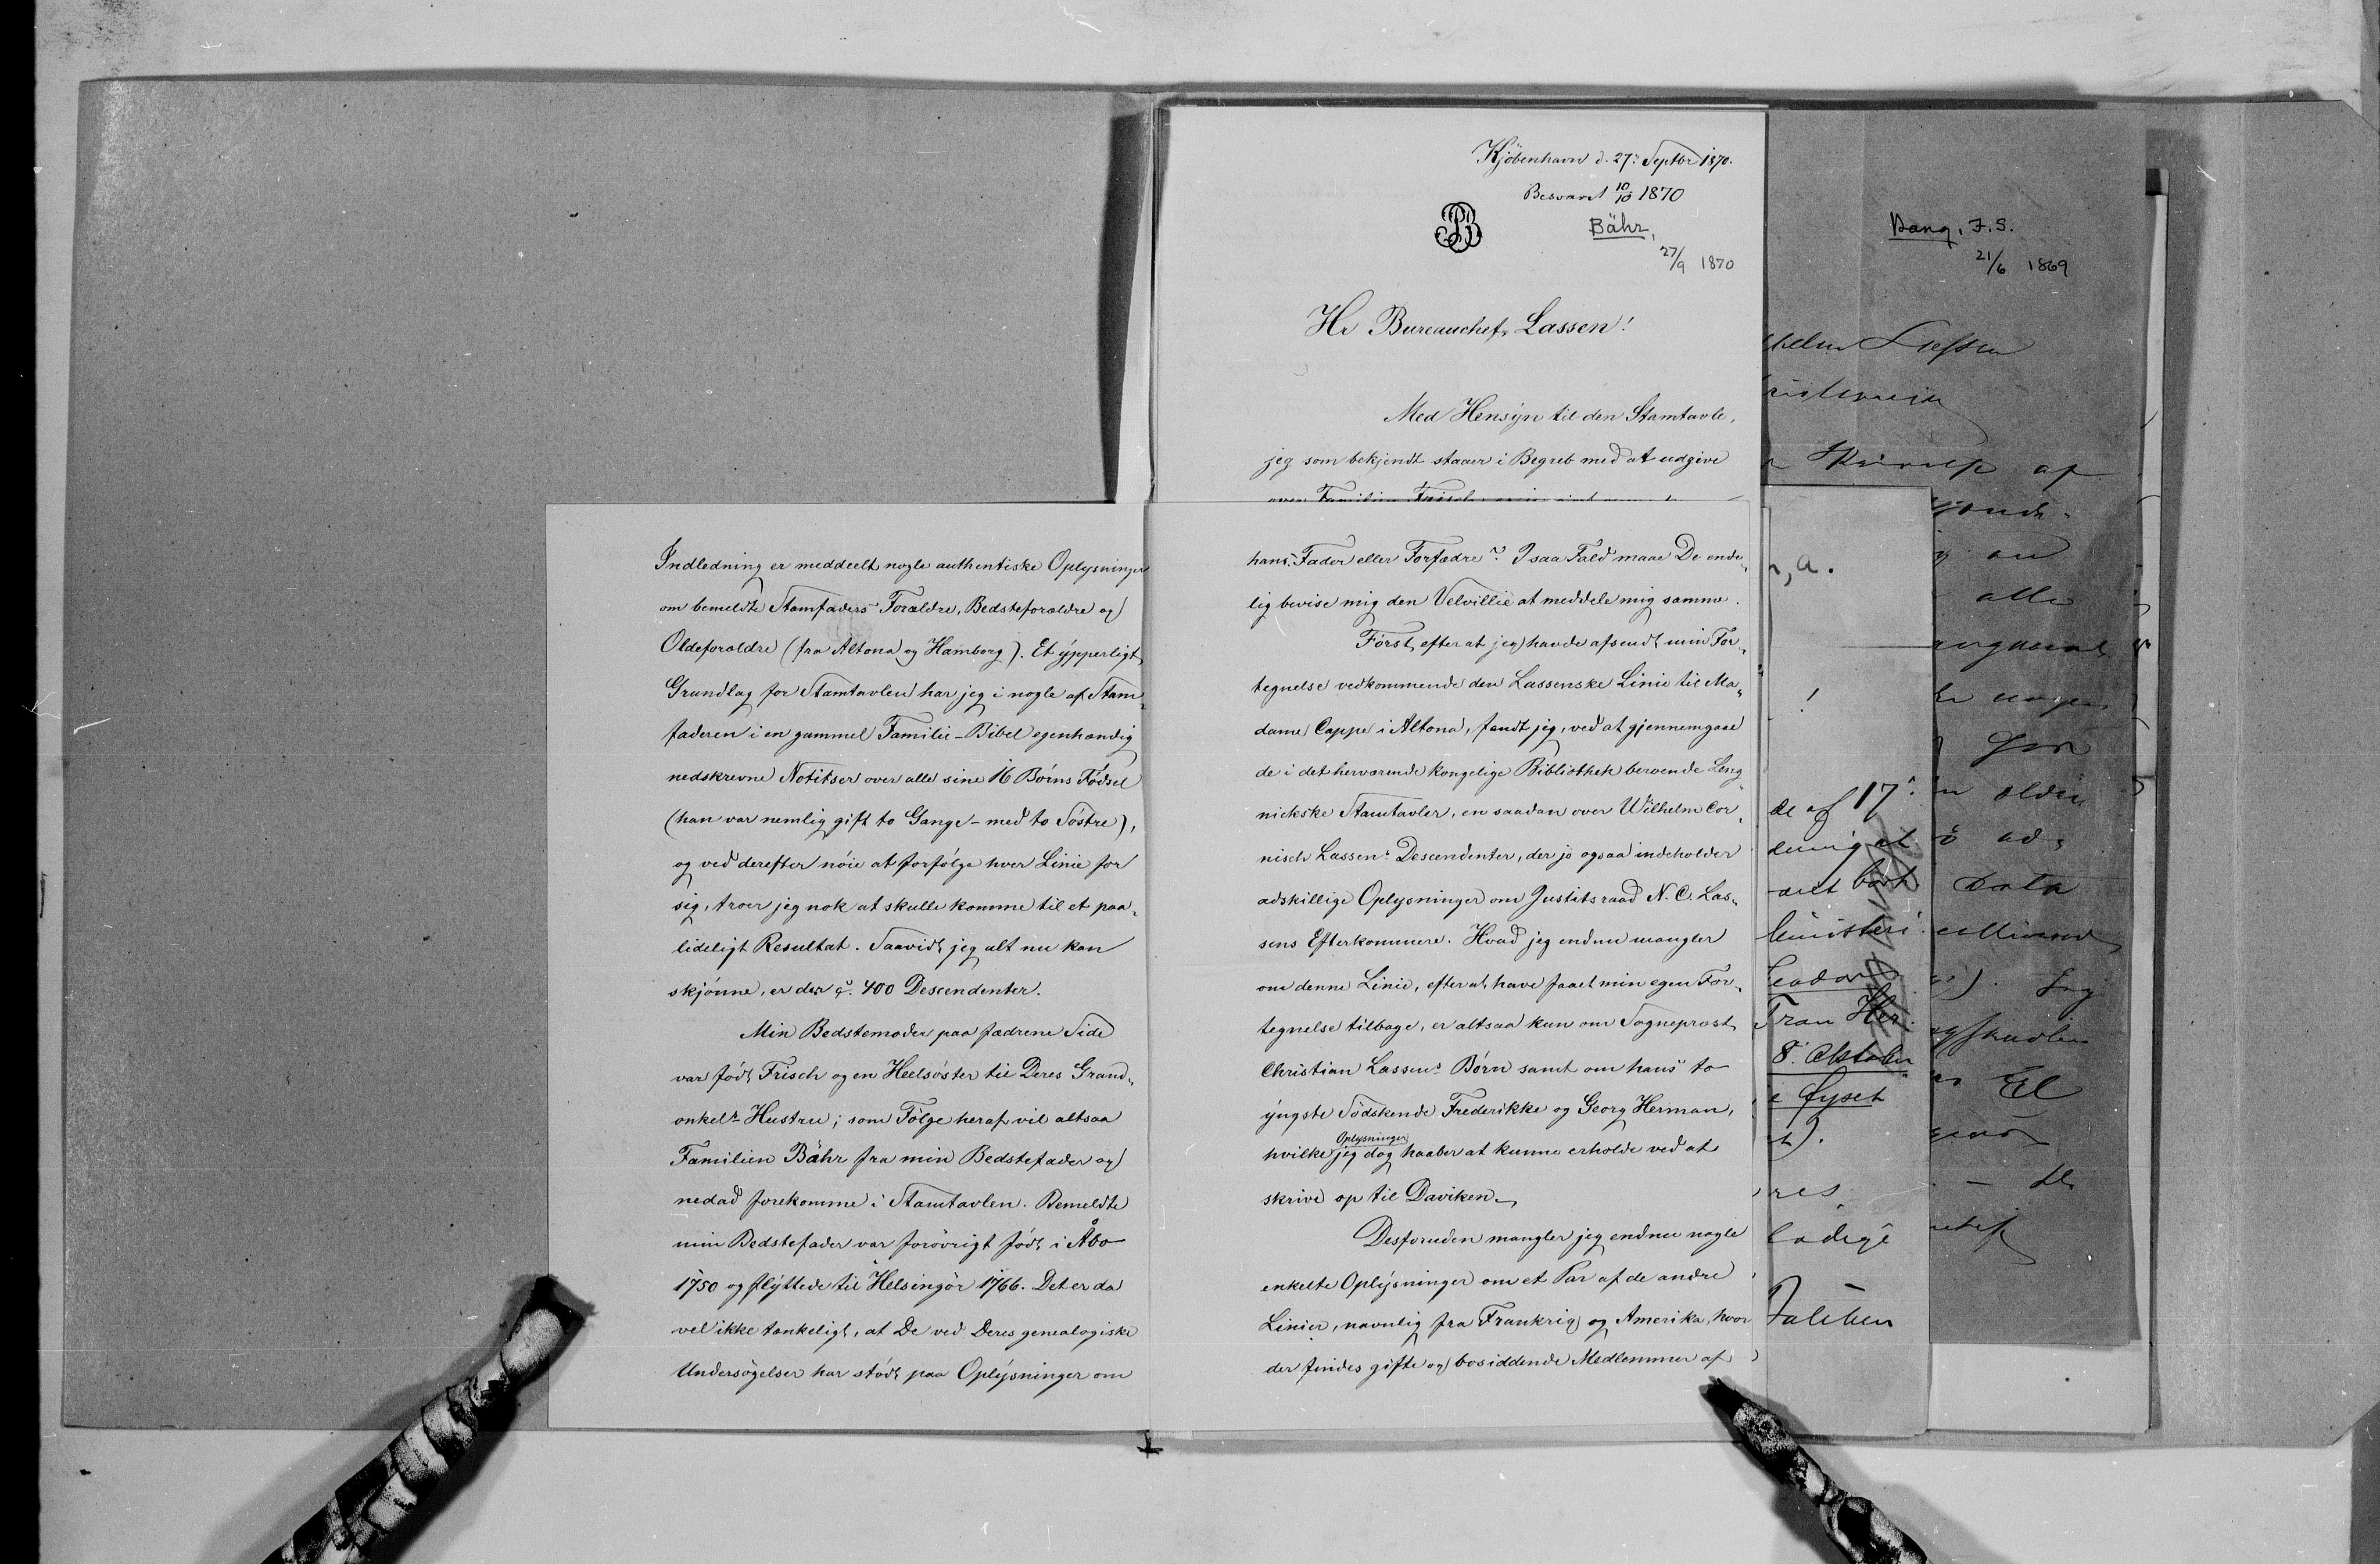 Kjöbenhavn d. 27: Septbr 1870.
Besvaret 10/10 1870
Bähr,
27/9 1870
Hr Bureauchef Lassen!
Med Hensyn til den Stamtavle,
jeg som bekjendt staaer i Begreb med at udgive
over Familien Frisch
Indledning er meddeelt nogle authentiske Oplysninger
om bemeldte Stamfaders Forældre, Bedsteforældre og
Oldeforældre (fra Altona og Hamborg). Et ypperligt
Grundlag for Stamtavlen har jeg i nogle af Stam„
faderen i en gammel Familie-Bibel egenhændig
nedskrevne Notitser over alle sine 16 Börns Födsel
(han var nemlig gift to Gange - med to Söstre),
og ved derefter nöie at forfölge hver Linie for
sig, troer jeg nok at skulle komme til et paa„
lideligt Resultat. Saavidt jeg alt nu kan
skjönne, er der c. 400 Descendenter.
Min Bedstemoder paa fædrene Side
var födt Frisch og en Heelsöster til Deres Grand„
onkels Hustru; som Fölge heraf vil altsaa
Familien Bähr fra min Bedstefader og
nedad forekomme i Stamtavlen. Bemeldte
min Bedstefader var forövrigt födt i Åbo
1750 og flyttede til Helsingör 1766. Det er da
vel ikke tænkeligt, at De ved Deres genealogiske
Undersögelser har stödt paa Oplysninger om
hans Fader eller Forfædre? I saa Fald maae De ende„
lig bevise mig den Velvillie at meddele mig samme.
Först, efter at jeg havde afsendt min For„
tegnelse vedkommende den Lassenske Linie til Ma„
dame Cappe i Altona, fandt jeg, ved at gjennemgaae
de i det herværende kongelige Bibliothek beroende Leng„
nickske Stamtavler, en saadan over Wilhelm Cor„
nisch Lassens Descendenter, der jo ogsaa indeholder
adskillige Oplysninger om Justitsraad N. C. Las„
sens Efterkommere. Hvad jeg endnu mangler
om denne Linie, efter at have faaet min egen For„
tegnelse tilbage, er altsaa kun om Sognepræst
Christian Lassens Börn samt om hans to
yngste Södskende Frederikke og Georg Herman,
hvilke Oplysninger jeg dog haaber at kunne erholde ved at
skrive op til Daviken.
Desforuden mangler jeg endnu nogle
enkelte Oplysninger om et Par af de andre
Linier, navnlig fra Frankrig og Amerika, hvor
der findes gifte og bosiddende Medlemmer af
, a.
!
de af 17
8. Oktober
Bang, F.S.
21/6 1869
af
alle